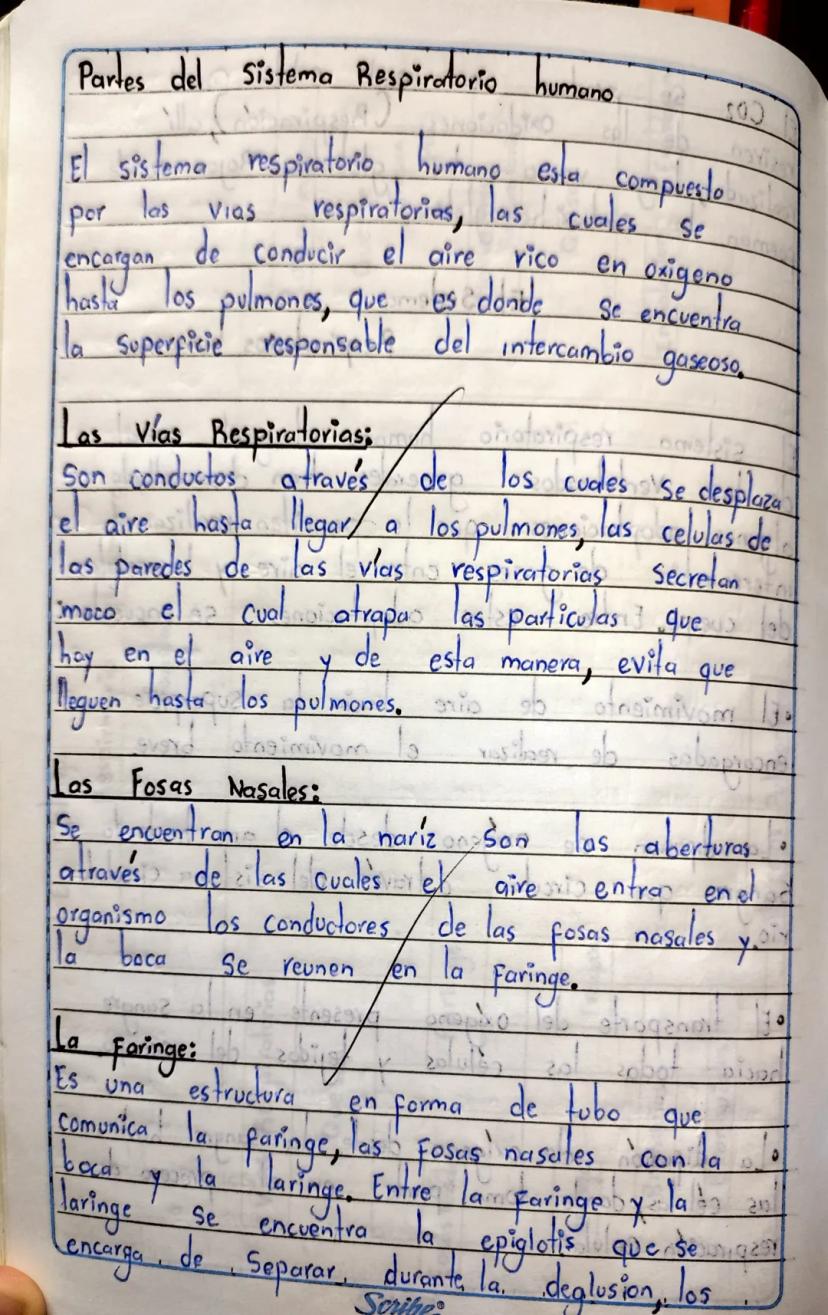 Partes del Sistema Respiratorio humano
El sistema respiratorio humano esta compuesto
por las vias respiratorias, las cuales se
encargan de conducir el aire rico en oxigeno
hasta los pulmones, que es donde se encuentra
la superficie responsable del intercambio gaseoso.
Las Vías Respiratorias:
Son conductos através de los cuales se desplaza
el aire hasta llegar a los pulmones, las celulas de
las paredes de las vías respiratorias secretan
moco el cual atrapa las particulas que
hay en el aire y de esta manera, evita que
lleguen hasta los pulmones.
Las Fosas Nasales:
Se encuentran en la naríz son las aberturas
através de las cuales el aire entra en el
organismo los conductores de las fosas nasales y
la boca se reunen en la Faringe.
La Faringe:
Es una estructura en forma de tubo que
comunica la faringe, las Fosas nasales con la
boca y la laringe. Entre la Faringe y la
laringe se encuentra la epiglotis que se
encarga de separar durante la deglusion, los
Scribe